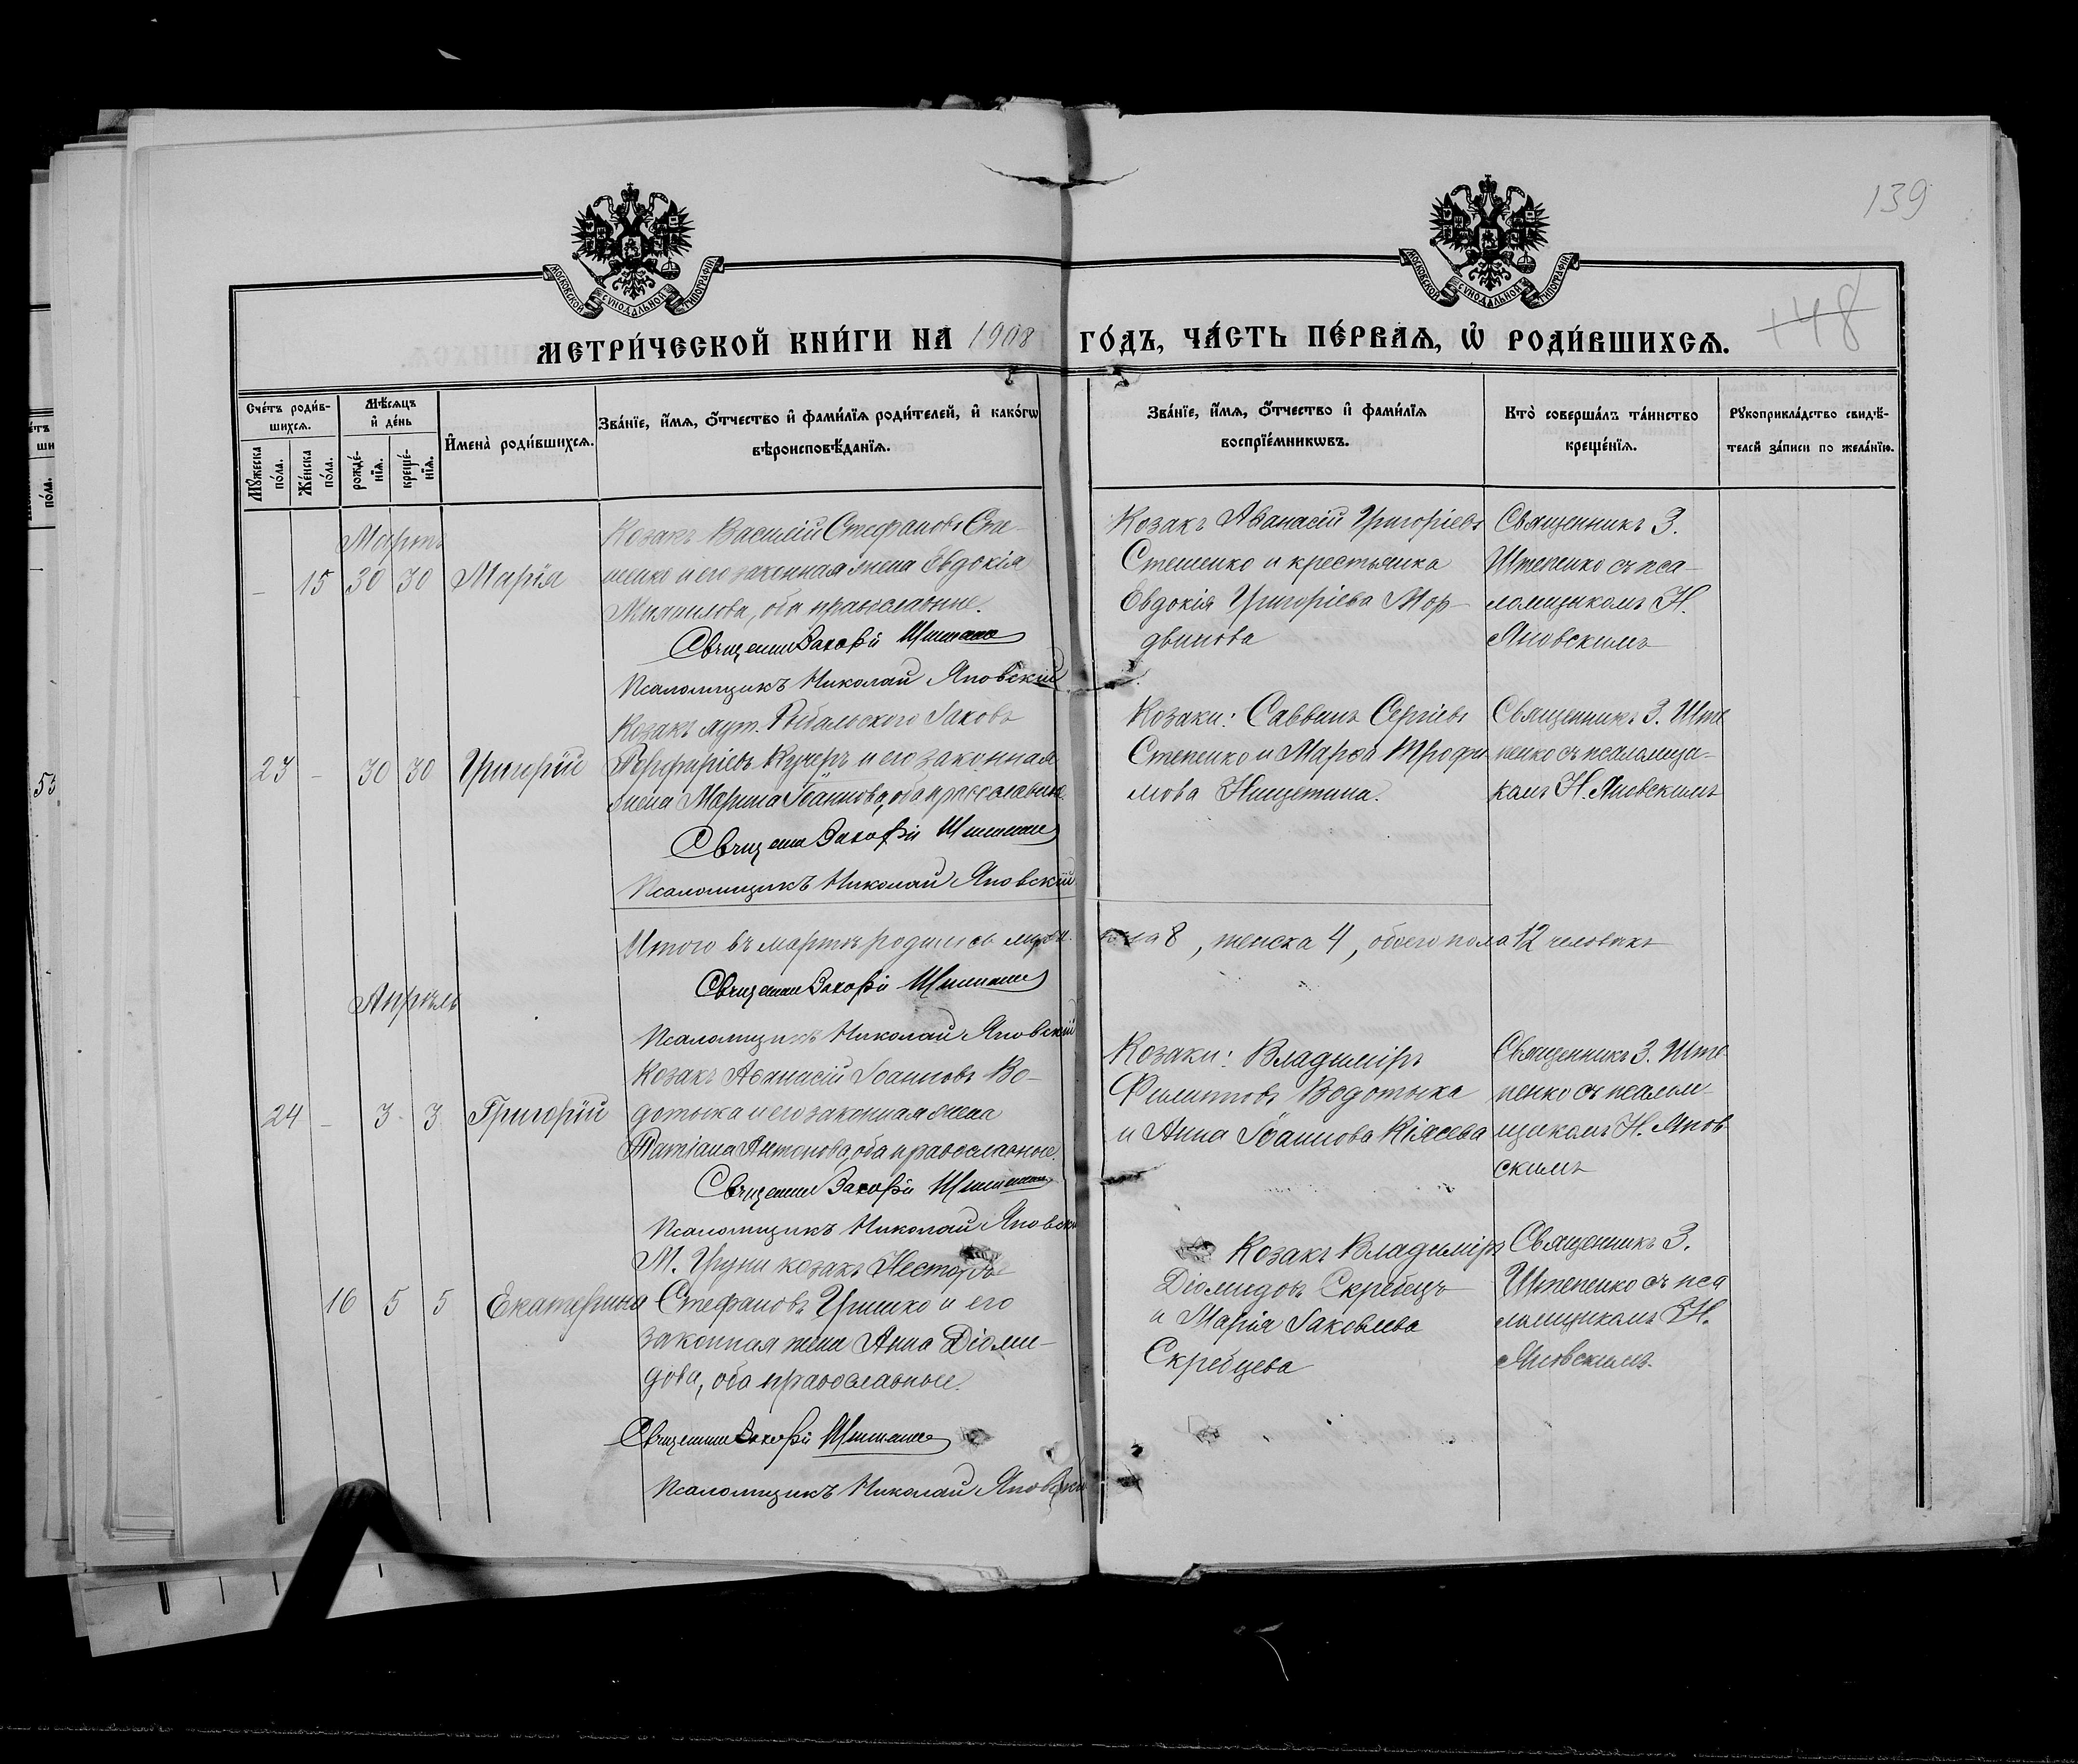 139
148
МОСКОВСКОЙ СѴНОДАЛЬНОЙ ТИПОГРАФІИ
МОСКОВСКОЙ СѴНОДАЛЬНОЙ ТИПОГРАФІИ
МЕТРИ́ЧЕСКОЙ КНИ́ГИ НА 1908 ГО́ДЪ, ЧА́СТЬ ПЕ́РВАѦ, Ѡ҆ РОДИ́ВШИХСѦ.
Сче́тъ роди́в-
шихсѧ.
Мꙋ́жеска по́ла.
Же́нска по́ла.
Мѣ́сѧцъ
и҆ де́нь
рожде́-
нїѧ.
креще́-
нїѧ.
И҆мена̀ роди́вшихсѧ.
Зва́нїе, и҆́мѧ, ѻ҆́тчество и҆ фами́лїѧ роди́телей, и҆ како́гѡ
вѣроисповѣ́данїѧ.
Зва́нїе, и҆́мѧ, ѻ҆́тчество и҆ фами́лїѧ
воспрїе́мникѡвъ.
Кто̀ соверша́лъ та́инство
креще́нїѧ.
Рꙋкоприкла́дство свидѣ́-
телей за́писи по жела́нїю.
Мартъ
- 15 30 30 Марія
Козакъ Василій Стефановъ Сте-
шенко и его законная жена Евдокія
Михаилова, оба православные.
Священникъ Захарій Штепенко
Псаломщикъ Николай Яновскій
Козакъ Аѳанасій Григоріевъ
Стешенко и крестьянка
Евдокія Григоріева Мор-
двинова
Священникъ З.
Штепенко съ пса-
ломщикомъ Н.
Яновскимъ
23 - 30 30 Григорій
Козакъ хут. Рыбальского Іаковъ
Порфиріевъ Кучеръ и его законная
жена Марина Іоаннова, оба православные.
Священникъ Захарій Штепенко
Псаломщикъ Николай Яновскій
Козаки: Саввинъ Сергіевъ
Степенко и Марѳа Трофи-
мова Нищетина.
Священникъ З. Ште
пенко съ псаломщи-
комъ Н. Яновскимъ
Итого въ мартѣ родилось мужеск. пола 8, женска 4, обоего пола 12 человѣкъ
Священникъ Захарій Штепенко
Псаломщикъ Николай Яновскій
Апрѣль
24 - 3 3 Григорій
Козакъ Аѳанасій Іоанновъ Во-
дотыка и его законная жена
Татіана Антонова, оба православные.
Священникъ Захарій Штепенко
Псаломщикъ Николай Яновскій
Козаки: Владиміръ
Филипповъ Водотыка
и Анна Іоаннова Кіясева
Священникъ З. Ште-
пенко съ псалом-
щикомъ Н. Янов-
скимъ
16 5 5 Екатерина
М. Груни козакъ Несторъ
Стефановъ Гришко и его
законная жена Анна Діоми-
дова, оба православные.
Священникъ Захарій Штепенко
Псаломщикъ Николай Яновскій
Козакъ Владиміръ
Діомидовъ Скребецъ
и Марія Іаковлева
Скребцева
Священникъ З.
Штепенко съ пса
ломщикомъ Н.
Яновскимъ.